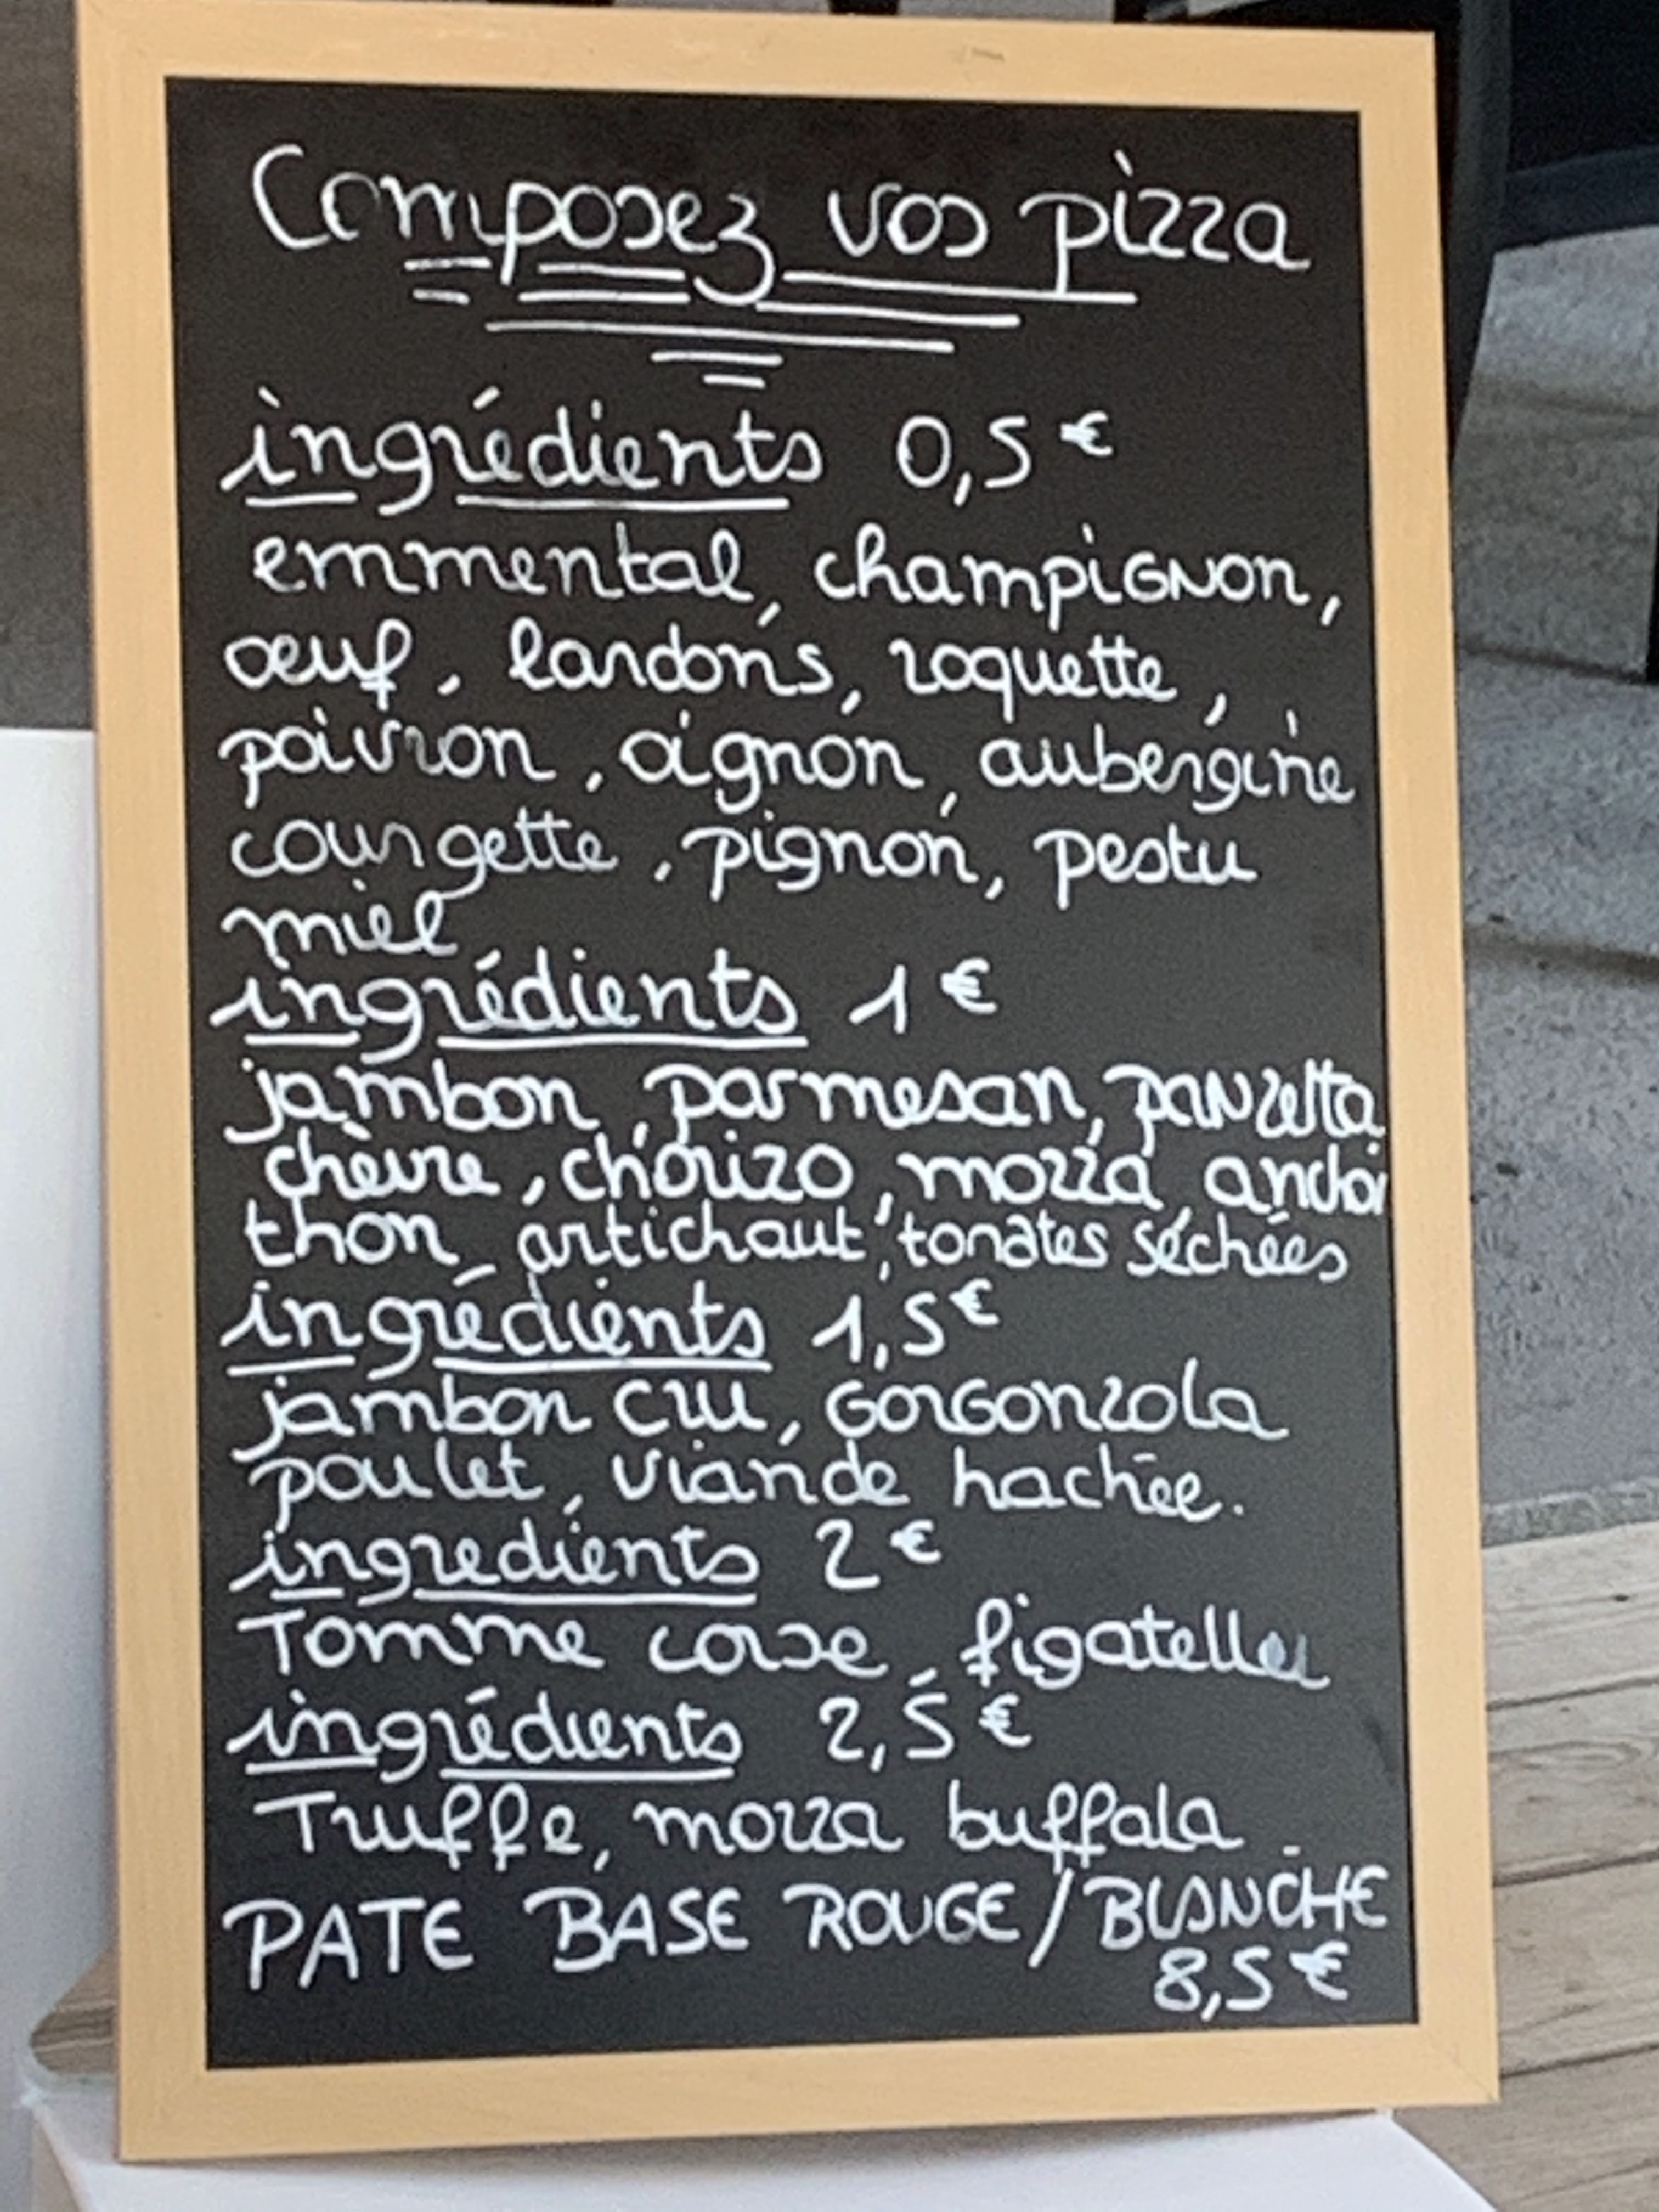 Composez vos pizza
ingrédients 0,5 €
emmental, champiGNon,
œuf, lardons, roquette,
poivron, oignon, aubergine
courgette, pignon, pestu
miel
ingrédients 1 €
jambon, parmesan, paNzetta
chèvre, chorizo, mozza, anchoi
thon, artichaut, tomates séchées
ingrédients 1,5 €
jambon cru, GorGonzola
poulet, viande hachée.
ingredients 2 €
Tomme corse, figatelli
ingrédients 2,5 €
Truffe, mozza buffala.
PATE BASE ROUGE/BLANCHE
8,5 €